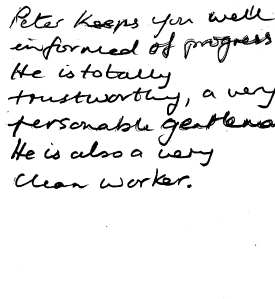 Peter keeps you well
informed of progress
He is totally
trustworthy, a very
personable gentlema
He is also a very
clean worker.